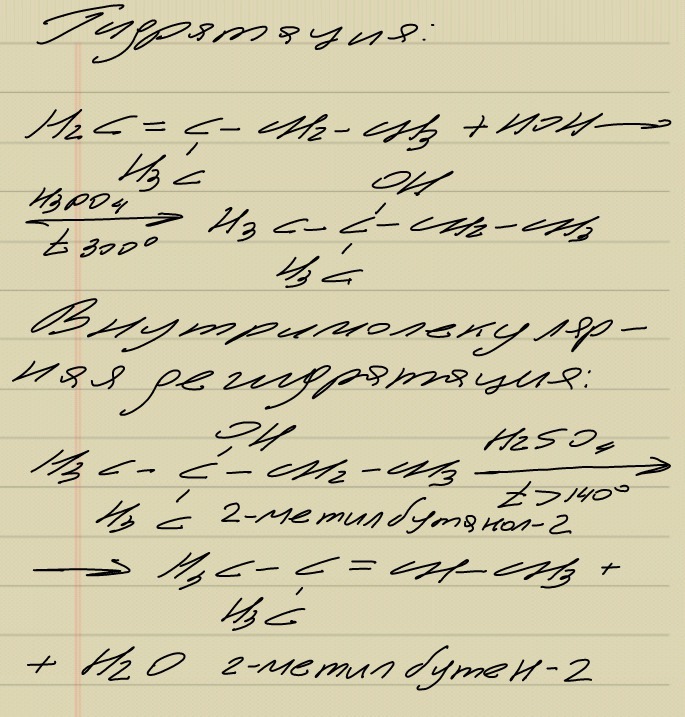 Гидратация:
H2C = C - CH2 - CH3 + HOH →
H3C OH
H3PO4 → H3C - C - CH2 - CH3
t 300° H3C
Внутримолекуляр-
ная дегидратация:
OH H2SO4
H3C - C - CH2 - CH3 →
H3C 2-метилбутанол-2 t > 140°
→ H3C - C = CH - CH3 +
H3C
+ H2O 2-метилбутен-2